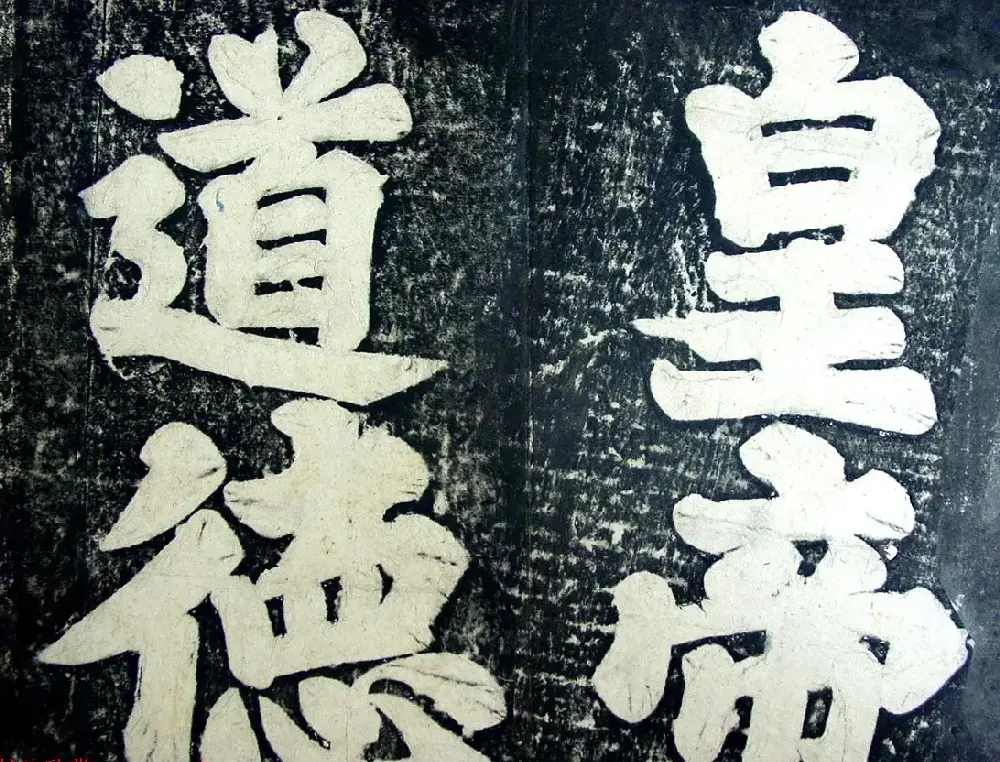 皇帝
道德